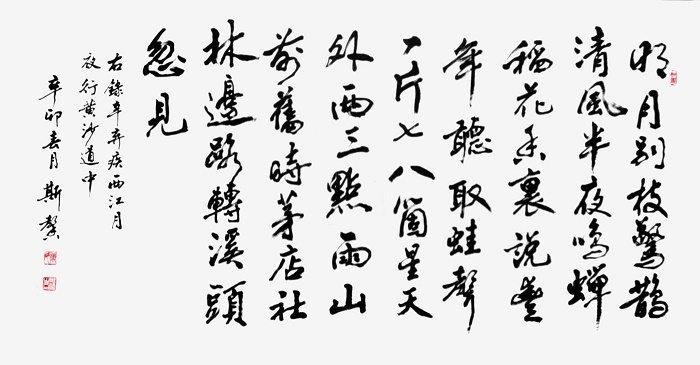 明月別枝驚鵲
清風半夜鳴蟬
稻花香裏說豐
年聽取蛙聲
一片七八箇星天
外兩三點雨山
前舊時茅店社
林邊路轉溪頭
忽見
右錄辛弃疾西江月
夜行黄沙道中
辛卯春月斯